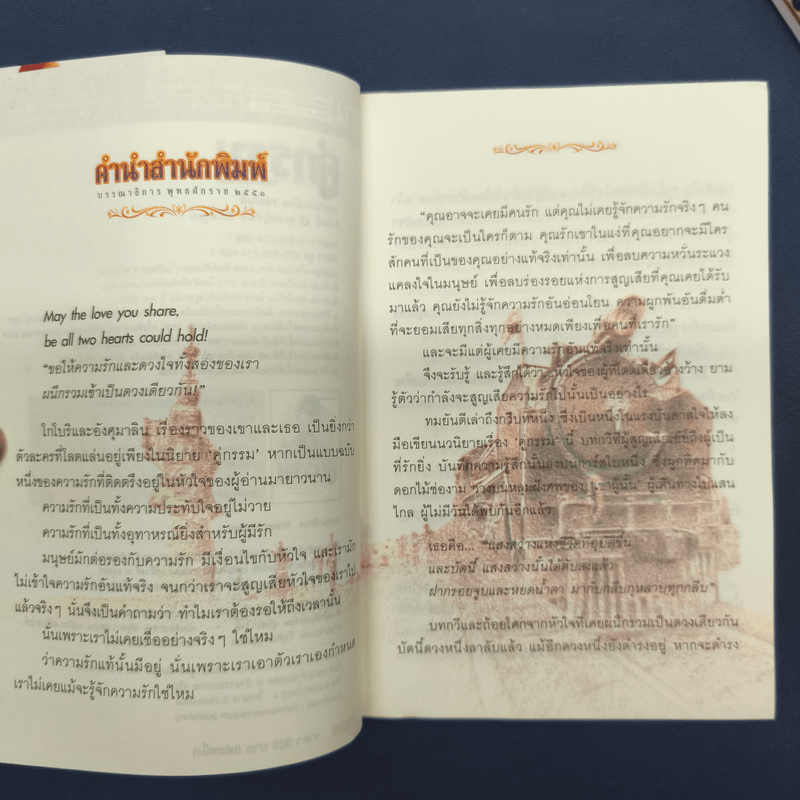 คำนำสำนักพิมพ์
บรรณาธิการ พุทธศักราช ๒๕๕๐
May the love you share,
be all two hearts could hold!
"ขอให้ความรักและดวงใจทั้งสองของเรา
ผนึกรวมเข้าเป็นดวงเดียวกัน!"
โกโบริและอังศุมาลิน เรื่องราวของเขาและเธอ เป็นยิ่งกว่า
ตัวละครที่โลดแล่นอยู่เพียงในนิยาย 'คู่กรรม' หากเป็นแบบฉบับ
หนึ่งของความรักที่ติดตรึงอยู่ในหัวใจของผู้อ่านมายาวนาน
ความรักที่เป็นทั้งความประทับใจอยู่ไม่วาย
ความรักที่เป็นทั้งอุทาหรณ์ยิ่งสำหรับผู้มีรัก
มนุษย์มักต่อรองกับความรัก มีเงื่อนไขกับหัวใจ และเรามัก
ไม่เข้าใจความรักอันแท้จริง จนกว่าเราจะสูญเสียหัวใจของเราไป
แล้วจริงๆ นั่นจึงเป็นคำถามว่า ทำไมเราต้องรอให้ถึงเวลานั้น
นั่นเพราะเราไม่เคยเชื่ออย่างจริงๆ ใช่ไหม
ว่าความรักแท้นั้นมีอยู่ นั่นเพราะเราเอาตัวเราเองกำหนด
เราไม่เคยแม้จะรู้จักความรักใช่ไหม
"คุณอาจจะเคยมีคนรัก แต่คุณไม่เคยรู้จักความรักจริงๆ คน
รักของคุณจะเป็นใครก็ตาม คุณรักเขาในแง่ที่คุณอยากจะมีใคร
สักคนที่เป็นของคุณอย่างแท้จริงเท่านั้น เพื่อลบความหวั่นระแวง
แคลงใจในมนุษย์ เพื่อลบร่องรอยแห่งการสูญเสียที่คุณเคยได้รับ
มาแล้ว คุณยังไม่รู้จักความรักอันอ่อนโยน ความผูกพันอันดื่มด่ำ
ที่จะยอมเสียทุกสิ่งทุกอย่างหมดเพียงเพื่อคนที่เรารัก"
และจะมีแต่ผู้เคยมีความรักอันแท้จริงเท่านั้น
จึงจะรับรู้ และรู้สึกได้ว่า หัวใจของผู้ที่โดดเดี่ยวอ้างว้าง ยาม
รู้ตัวว่ากำลังจะสูญเสียความรักไปนั้นเป็นอย่างไร
ทมยันตีเล่าถึงกวีบทหนึ่ง ซึ่งเป็นหนึ่งในแรงบันดาลใจให้ลง
มือเขียนนวนิยายเรื่อง 'คู่กรรม' นี้ บทกวีที่ผู้สูญเสียเอ่ยถึงผู้เป็น
ที่รักยิ่ง บันทึกความรู้สึกนั้นลงบนการ์ดใบหนึ่ง ซึ่งผูกติดมากับ
ดอกไม้ช่องาม วางบนหลุมฝังศพของ 'เขาผู้นั้น' ผู้เดินทางไปแสน
ไกล ผู้ไม่มีวันได้พบกันอีกแล้ว
เธอคือ... "แสงสว่างแห่งชีวิตที่อุบัติขึ้น
และบัดนี้ แสงสว่างนั้นได้ดับลงแล้ว
ฝากรอยจูบและหยดน้ำตา มากับกลีบกุหลาบทุกกลีบ"
บทกวีและถ้อยโศกจากหัวใจที่เคยผนึกรวมเป็นดวงเดียวกัน
บัดนี้ดวงหนึ่งลาลับแล้ว แม้อีกดวงหนึ่งยังดำรงอยู่ หากจะดำรง